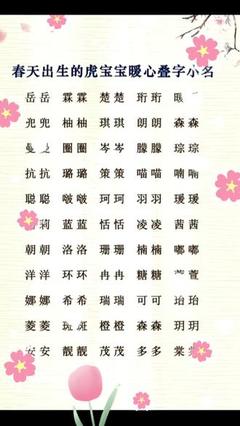 春天出生的虎宝宝暖心叠字小名
岳岳 霖霖 楚楚 珩珩
兜兜 柚柚 琪琪 朗朗 森森
圈圈 岑岑 朦朦 琮琮
抗抗 璐璐 策策 喵喵 喃喃
聪聪 啵啵 珂珂 羽羽 瑗瑗
莉 蓝蓝 恬恬 凌凌 茜茜
朝朝 洛洛 珊珊 楠楠 嘟嘟
洋洋 环环 冉冉 糖糖 萱
娜娜 希希 瑞瑞 可可 珆珆
菱菱 斑斑 橙橙 森森 玥玥
安安 靓靓 茂茂 多多 棠